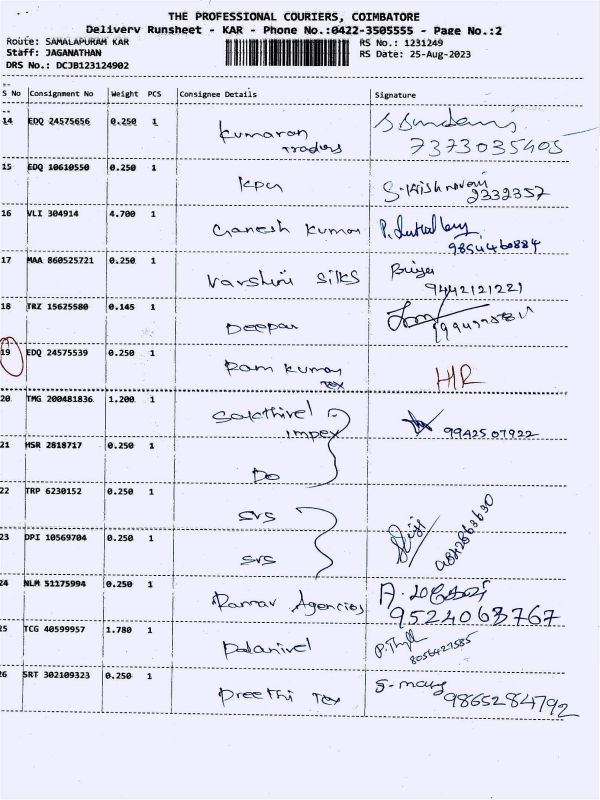 THE PROFESSIONAL COURIERS, COIMBATORE
Delivery Runsheet - KAR - Phone No.:0422-3505555 - Page No.:2
Route: SAMALAPURAM KAR RS No.: 1231249
Staff: JAGANATHAN RS Date: 25-Aug-2023
DRS No.: DCJB123124902
S No Consignment No Weight PCS Consignee Details Signature
14 EDQ 24575656 0.250 1 Kumaran
Traders
7373035405
15 EDQ 10610550 0.250 1 KPU
2332357
16 VLI 304914 4.700 1 Ganesh Kumar
9854460884
17 MAA 860525721 0.250 1 Varshini Silks
9442121221
18 TRZ 15625580 0.145 1 Deepan
19 EDQ 24575539 0.250 1 Ram Kumar HR
Tex
20 TMG 200481836 1.200 1 Sakthivel
Impex 9942507922
21 MSR 2818717 0.250 1 Do
22 TRP 6230152 0.250 1 SVS
23 DPI 10569704 0.250 1 SVS
9842863630
24 NLM 51175994 0.250 1 Raman Agencies
9524063767
25 TCG 40599957 1.780 1 Palanivel
8056427585
26 SRT 302109323 0.250 1 Preethi Tex
9865284792